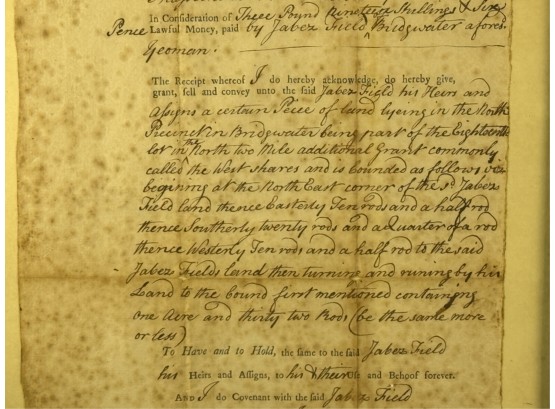 In Consideration of Three Pound nineteen Shillings & Six
Pence Lawful Money, paid by Jabez Field Bridgwater afores.d
Yeoman.
The Receipt whereof I do hereby acknowledge, do hereby give,
grant, sell and convey unto the said Jabez Field his Heirs and
Assigns a certain Peice of land lyeing in the North
Precinct in Bridgwater being part of the Eighteenth
lot in the North two Mile additional Grant commonly
called the West shares and is bounded as follows viz
begining at the North East corner of the s.d Jabez
Field land thence Easterly Ten rods and a half rod
thence Southerly twenty rods and a Quarter of a rod
thence Westerly Ten rods and a half rod to the said
Jabez Fields land then turning and runing by his
Land to the bound first mentioned containing
one Acre and thirty two Rods (be the same more
or less)
To Have and to Hold, the same to the said Jabez Field
his Heirs and Assigns, to his & their Use and Behoof forever.
AND I do Covenant with the said Jabez Field